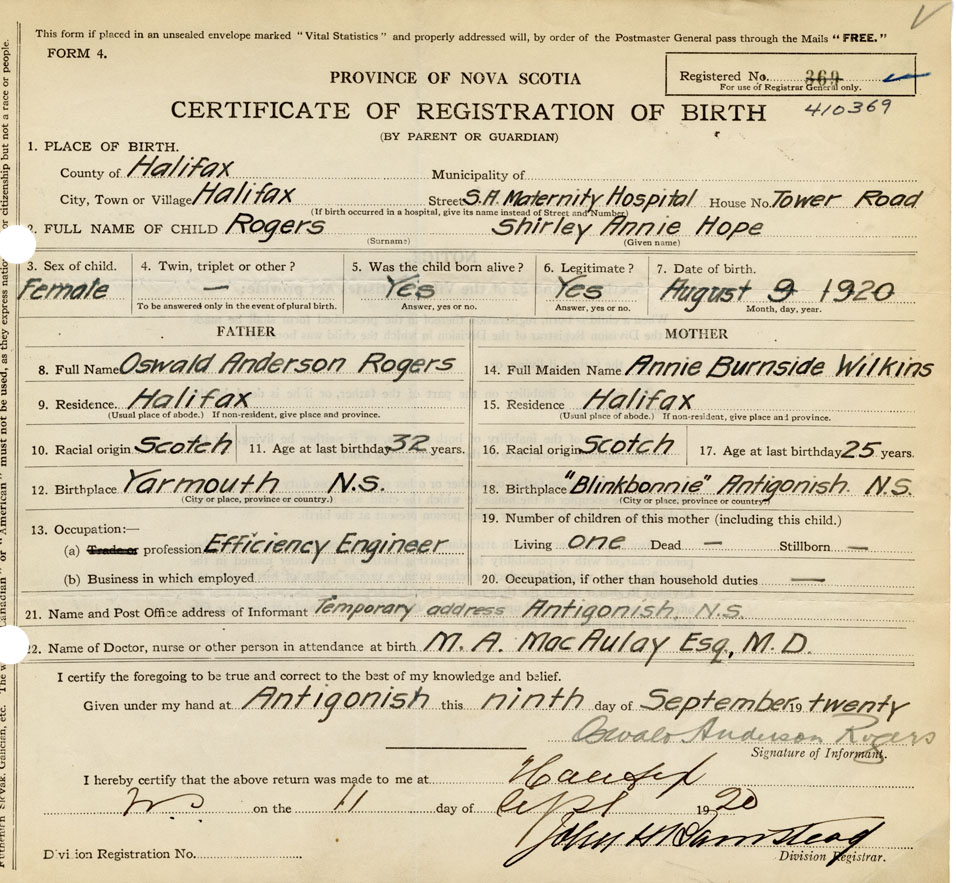 This form if placed in an unsealed envelope marked "Vital Statistics" and properly addressed will, by order of the Postmaster General pass through the Mails "FREE."
FORM 4.
PROVINCE OF NOVA SCOTIA
Registered No. 369
For use of Registrar General only.
410369
CERTIFICATE OF REGISTRATION OF BIRTH
(BY PARENT OR GUARDIAN)
1. PLACE OF BIRTH.
County of Halifax Municipality of
City, Town or Village Halifax Street S.A. Maternity Hospital House No. Tower Road
(If birth occurred in a hospital, give its name instead of Street and Number)
2. FULL NAME OF CHILD Rogers Shirley Annie Hope
(Surname) (Given name)
3. Sex of child. 4. Twin, triplet or other? 5. Was the child born alive? 6. Legitimate? 7. Date of birth.
Female — Yes Yes August 9 1920
To be answered only in the event of plural birth. Answer, yes or no. Answer, yes or no. Month, day, year.
FATHER MOTHER
8. Full Name Oswald Anderson Rogers 14. Full Maiden Name Annie Burnside Wilkins
9. Residence. Halifax 15. Residence Halifax
(Usual place of abode.) If non-resident, give place and province. (Usual place of abode.) If non-resident, give place and province.
10. Racial origin Scotch 11. Age at last birthday 32 years. 16. Racial origin Scotch 17. Age at last birthday 25 years.
12. Birthplace Yarmouth N.S. 18. Birthplace "Blinkbonnie" Antigonish. N.S.
(City or place, province or country.) (City or place, province or country.)
13. Occupation:— 19. Number of children of this mother (including this child.)
(a) Trade or profession Efficiency Engineer Living one Dead — Stillborn —
(b) Business in which employed 20. Occupation, if other than household duties —
21. Name and Post Office address of Informant Temporary address Antigonish, N.S.
22. Name of Doctor, nurse or other person in attendance at birth M. A. MacAulay Esq., M.D.
I certify the foregoing to be true and correct to the best of my knowledge and belief.
Given under my hand at Antigonish this ninth day of September 19 twenty
Oswald Anderson Rogers
Signature of Informant.
I hereby certify that the above return was made to me at Halifax
N.S. on the 11 day of Sept 1920
John H
Division Registration No. Division Registrar.